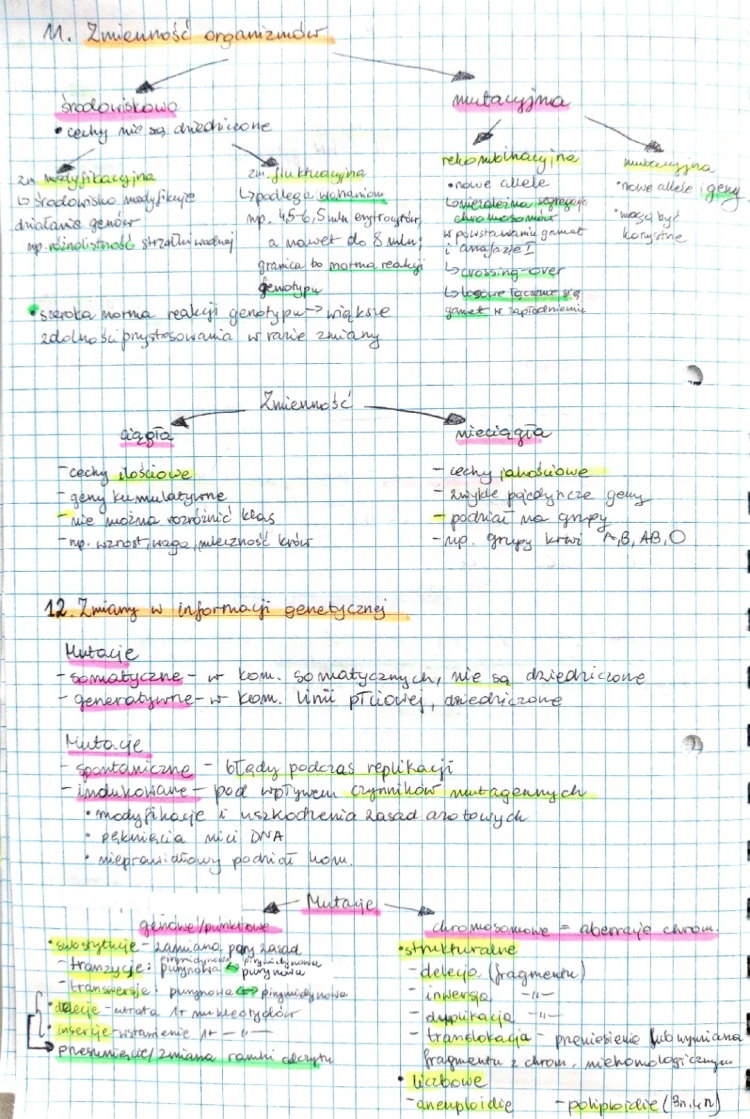 11. Zmienność organizmów
środowiskowa
• cechy nie są dziedziczone
zm. modyfikacyjna
↳ środowisko modyfikuje
działanie genów
np. różnolistność strzałki wodnej
zm. fluktuacyjna
↳ podlega wahaniom
np. 4,5-6,5 mln erytrocytów,
a nawet do 8 mln;
granica to norma reakcji
genotypu
• szeroka norma reakcji genotypu → większe
zdolności przystosowania w razie zmiany
mutacyjna
rekombinacyjna
• nowe allele
↳ niezależna segregacja
chromosomów
w powstawaniu gamet
i anafazie I
↳ crossing-over
↳ losowe łączenie się
gamet w zapłodnieniu
mutacyjna
• nowe allele i geny
• mogą być
korzystne
Zmienność
ciągła
- cechy ilościowe
- geny kumulatywne
- nie można rozróżnić klas
- np. wzrost, waga, mleczność krów
nieciągła
- cechy jakościowe
- zwykle pojedyncze geny
- podział na grupy
- np. grupy krwi A, B, AB, O
12. Zmiany w informacji genetycznej
Mutacje
- somatyczne - w kom. somatycznych, nie są dziedziczone
- generatywne - w kom. linii płciowej, dziedziczone
Mutacje
- spontaniczne - błędy podczas replikacji
- indukowane - pod wpływem czynników mutagennych
• modyfikacje i uszkodzenia zasad azotowych
• pęknięcia nici DNA
• nieprawidłowy podział kom.
Mutacje
genowe/punktowe
• substytucje - zamiana pary zasad
pirymidynowa ↔ pirymidynowa
- tranzycje: purynowa ↔ purynowa
- transwersje: purynowa ↔ pirymidynowa
• delecje - utrata 1+ nukleotydów
• insercje - wstawienie 1+ -"-
przesunięcie/zmiana ramki odczytu
chromosomowe = aberracje chrom.
• strukturalne
- delecja (fragmentu)
- inwersja -"-
- duplikacja -"-
- translokacja - przeniesienie lub wymiana
fragmentu z chrom. niehomologicznym
• liczbowe
- aneuploidie - poliploidie (3n, 4n)